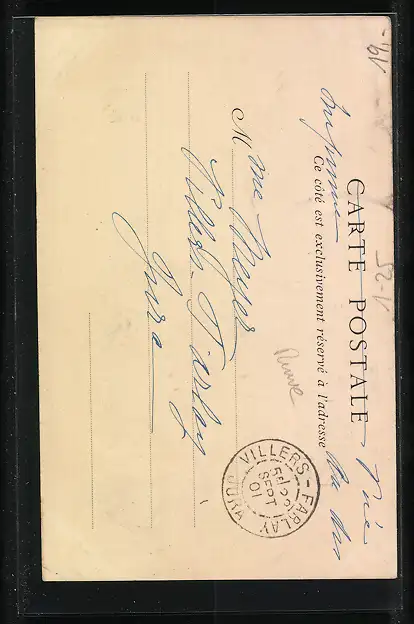 Imprimé
CARTE POSTALE
Ce côté est exclusivement réservé à l'adresse
Mme Meyer
Villers-Farlay
Jura
VILLERS-FARLAY
SEPT
01
JURA